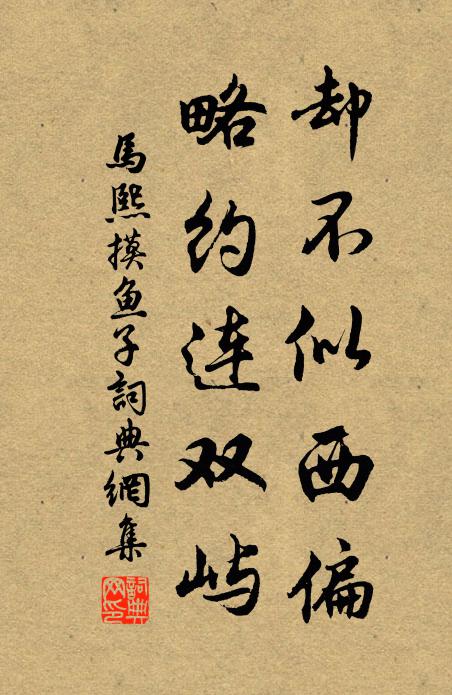 却不似西偏
略约连双屿
馬熙摸鱼子詞典網集
詞典网印